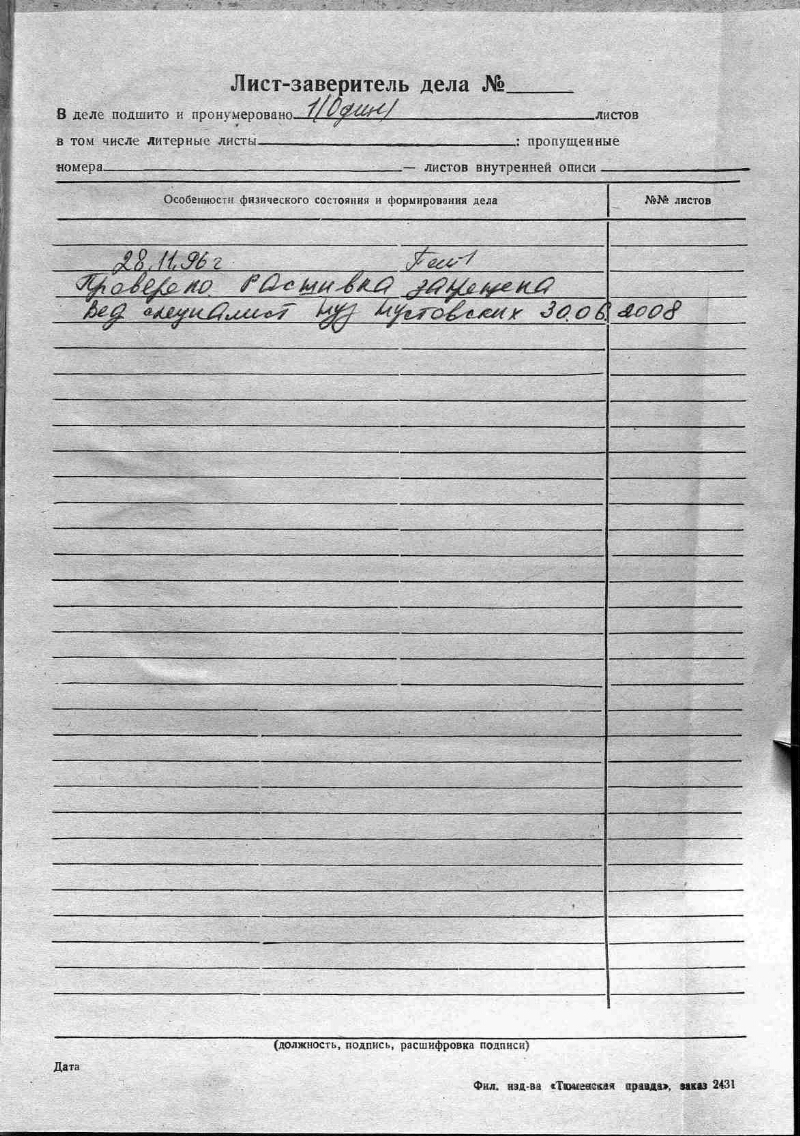 Лист-заверитель дела №
В деле подшито и пронумеровано 1 (Один) листов
в том числе литерные листы ; пропущенные
номера — листов внутренней описи
Особенности физического состояния и формирования дела №№ листов
28.11.96 г
Проверено. Расшивка запрещена
Вед специалист Мустовских 30.06.2008
(должность, подпись, расшифровка подписи)
Дата
Фил. изд-ва «Тюменская правда», заказ 2431